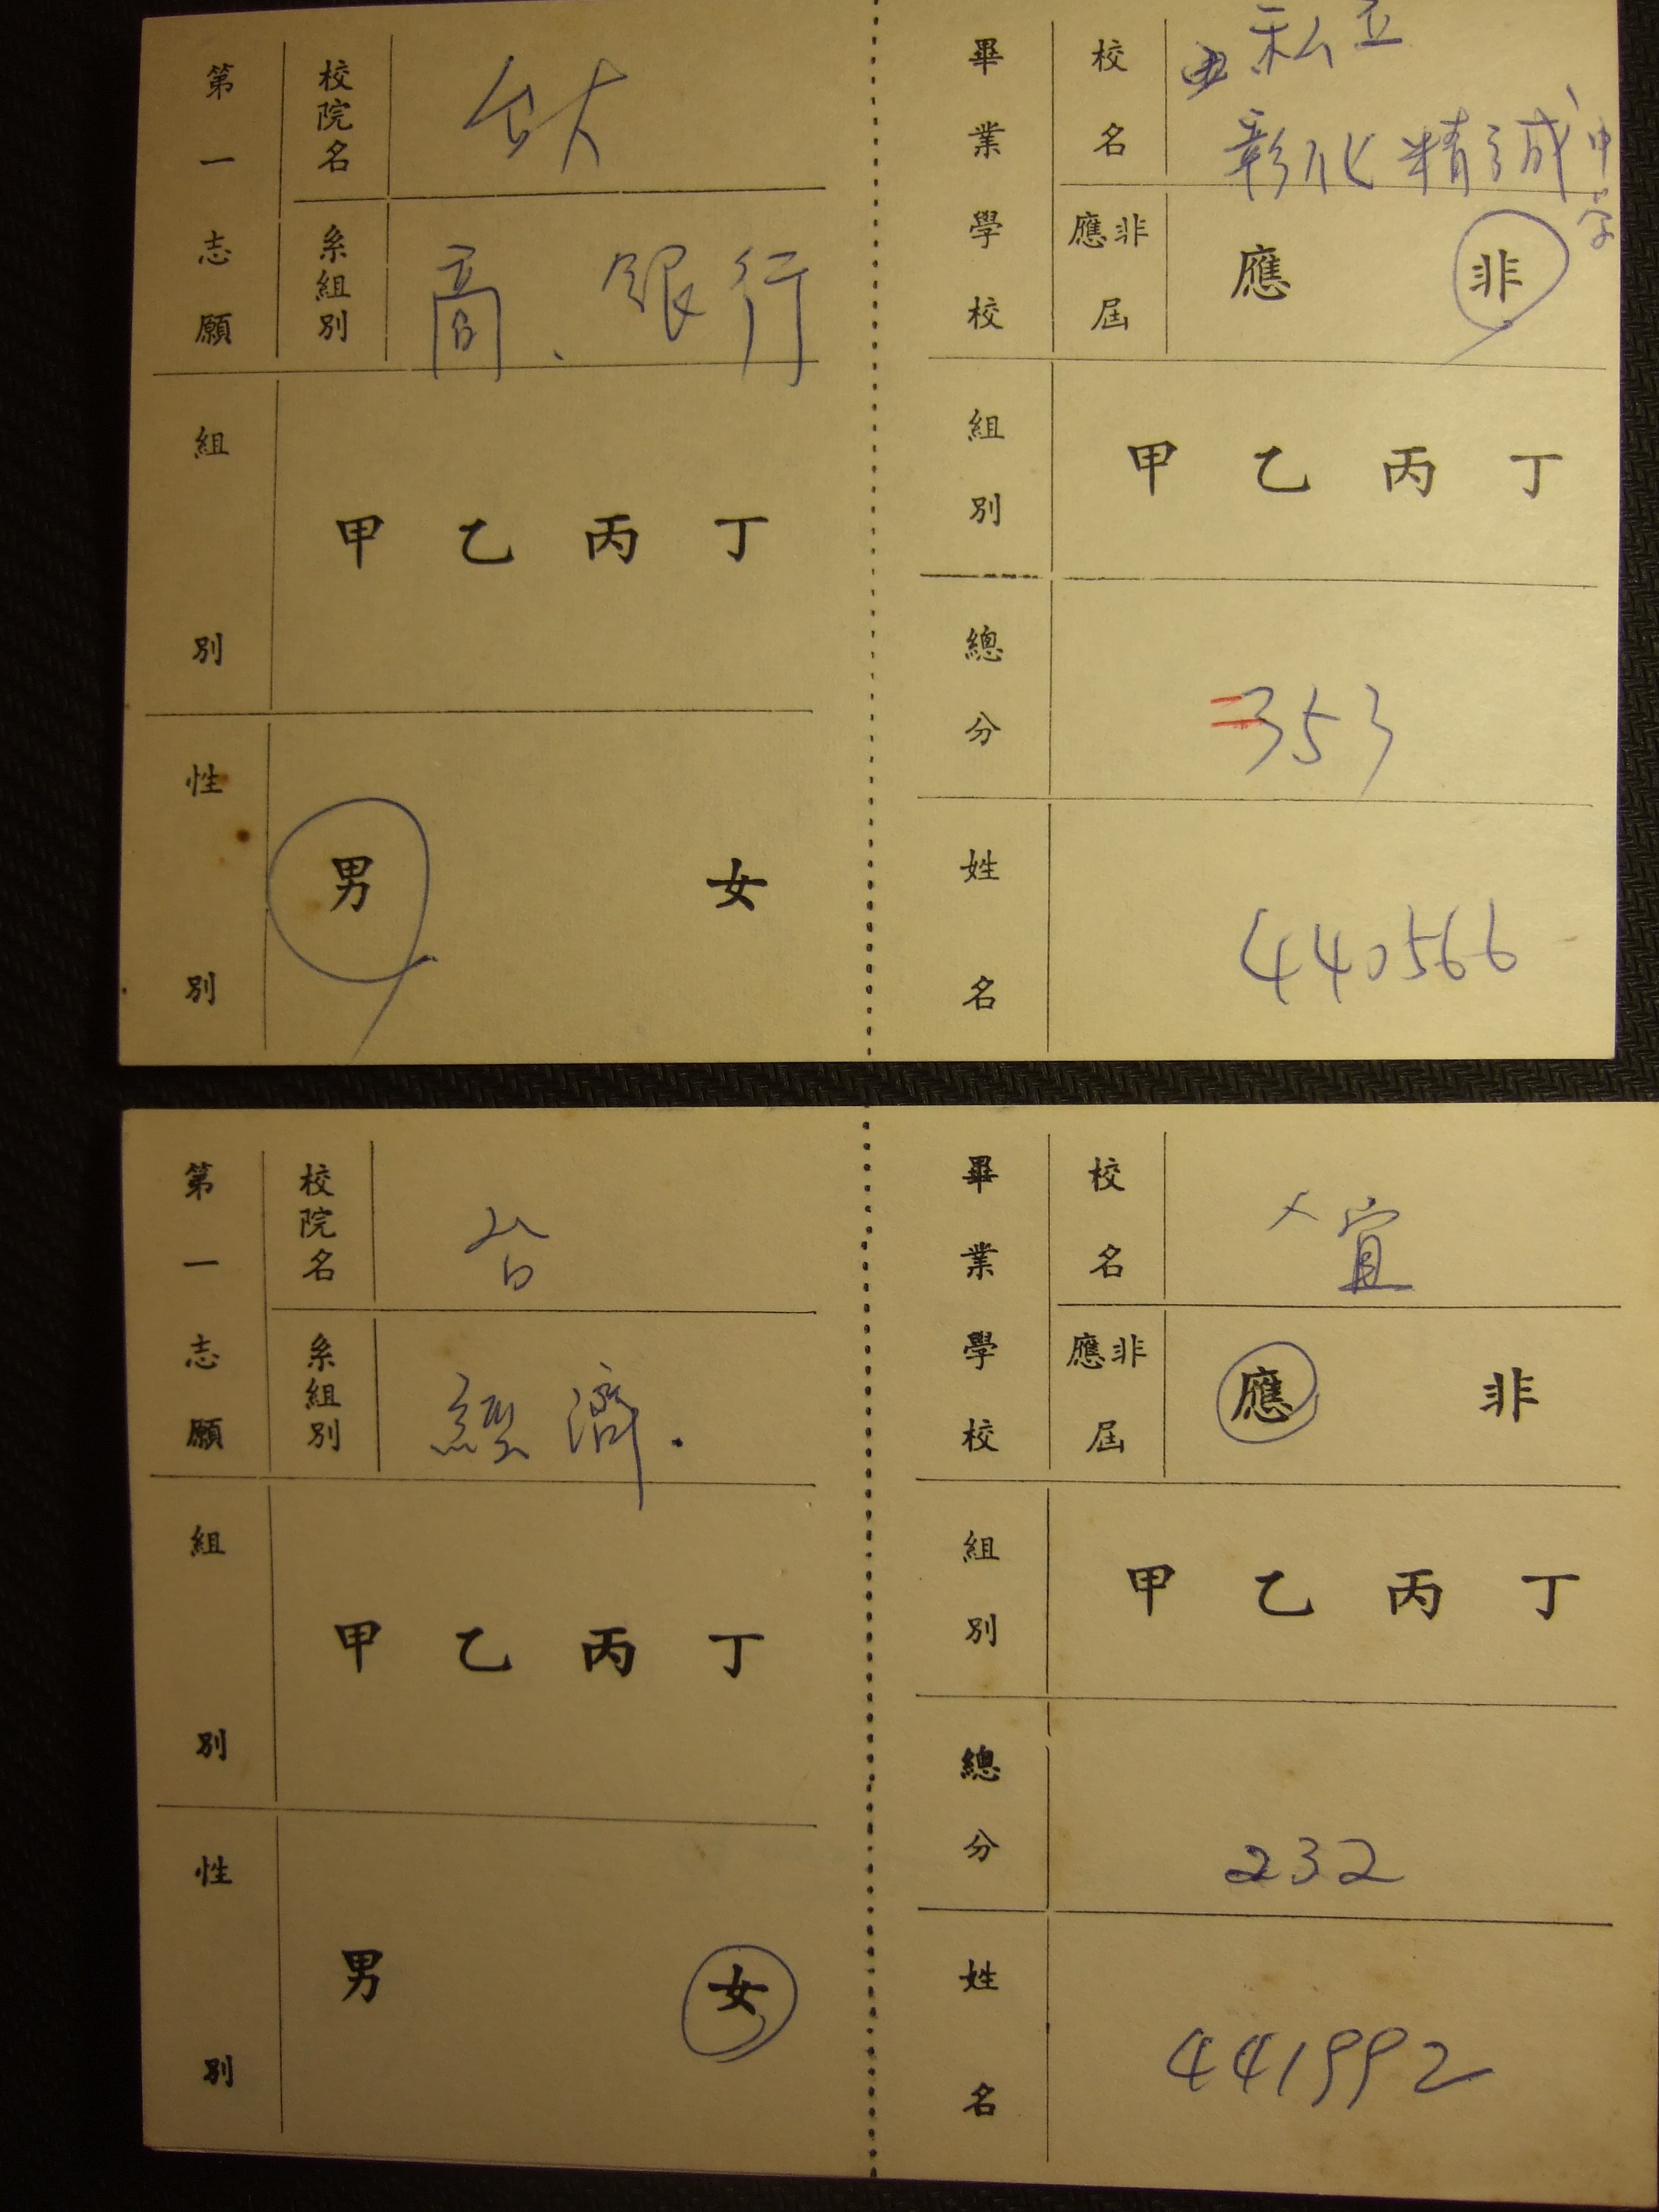 第一志願
校院名
台大
系組別
商、銀行
組別
甲 乙 丙 丁
性別
男 女
畢業學校
校名
私立
彰化精誠中
学
應非屆
應 非
組別
甲 乙 丙 丁
總分
353
姓名
440566
第一志願
校院名
台
系組別
經濟.
組別
甲 乙 丙 丁
性別
男 女
畢業學校
校名
宜
應非屆
應 非
組別
甲 乙 丙 丁
總分
232
姓名
441992